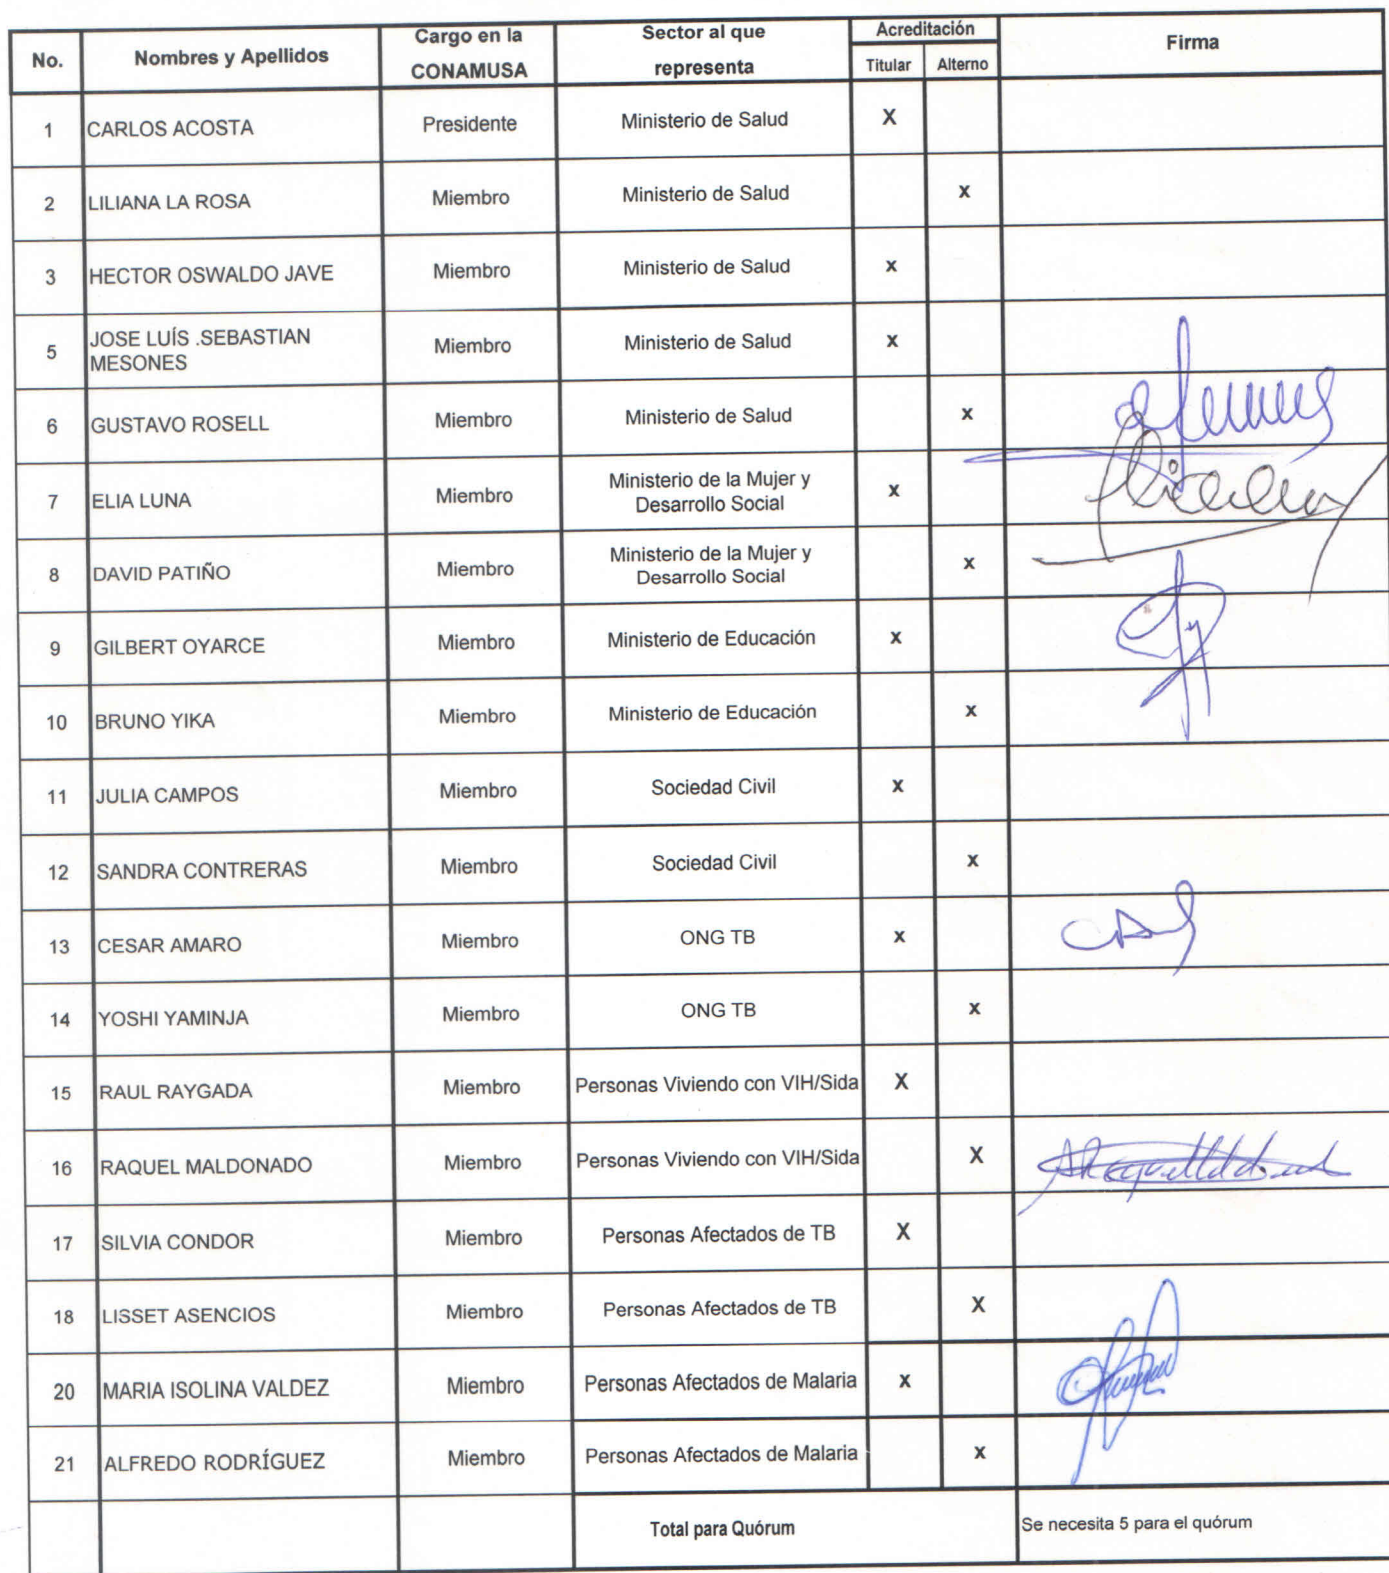 No. Nombres y Apellidos Cargo en la CONAMUSA Sector al que representa Acreditación Firma
Titular Alterno
1 CARLOS ACOSTA Presidente Ministerio de Salud X
2 LILIANA LA ROSA Miembro Ministerio de Salud x
3 HECTOR OSWALDO JAVE Miembro Ministerio de Salud x
5 JOSE LUÍS .SEBASTIAN MESONES Miembro Ministerio de Salud x
6 GUSTAVO ROSELL Miembro Ministerio de Salud x
7 ELIA LUNA Miembro Ministerio de la Mujer y Desarrollo Social x
8 DAVID PATIÑO Miembro Ministerio de la Mujer y Desarrollo Social x
9 GILBERT OYARCE Miembro Ministerio de Educación x
10 BRUNO YIKA Miembro Ministerio de Educación x
11 JULIA CAMPOS Miembro Sociedad Civil x
12 SANDRA CONTRERAS Miembro Sociedad Civil x
13 CESAR AMARO Miembro ONG TB x
14 YOSHI YAMINJA Miembro ONG TB x
15 RAUL RAYGADA Miembro Personas Viviendo con VIH/Sida X
16 RAQUEL MALDONADO Miembro Personas Viviendo con VIH/Sida X
17 SILVIA CONDOR Miembro Personas Afectados de TB X
18 LISSET ASENCIOS Miembro Personas Afectados de TB X
20 MARIA ISOLINA VALDEZ Miembro Personas Afectados de Malaria x
21 ALFREDO RODRÍGUEZ Miembro Personas Afectados de Malaria x
Total para Quórum Se necesita 5 para el quórum